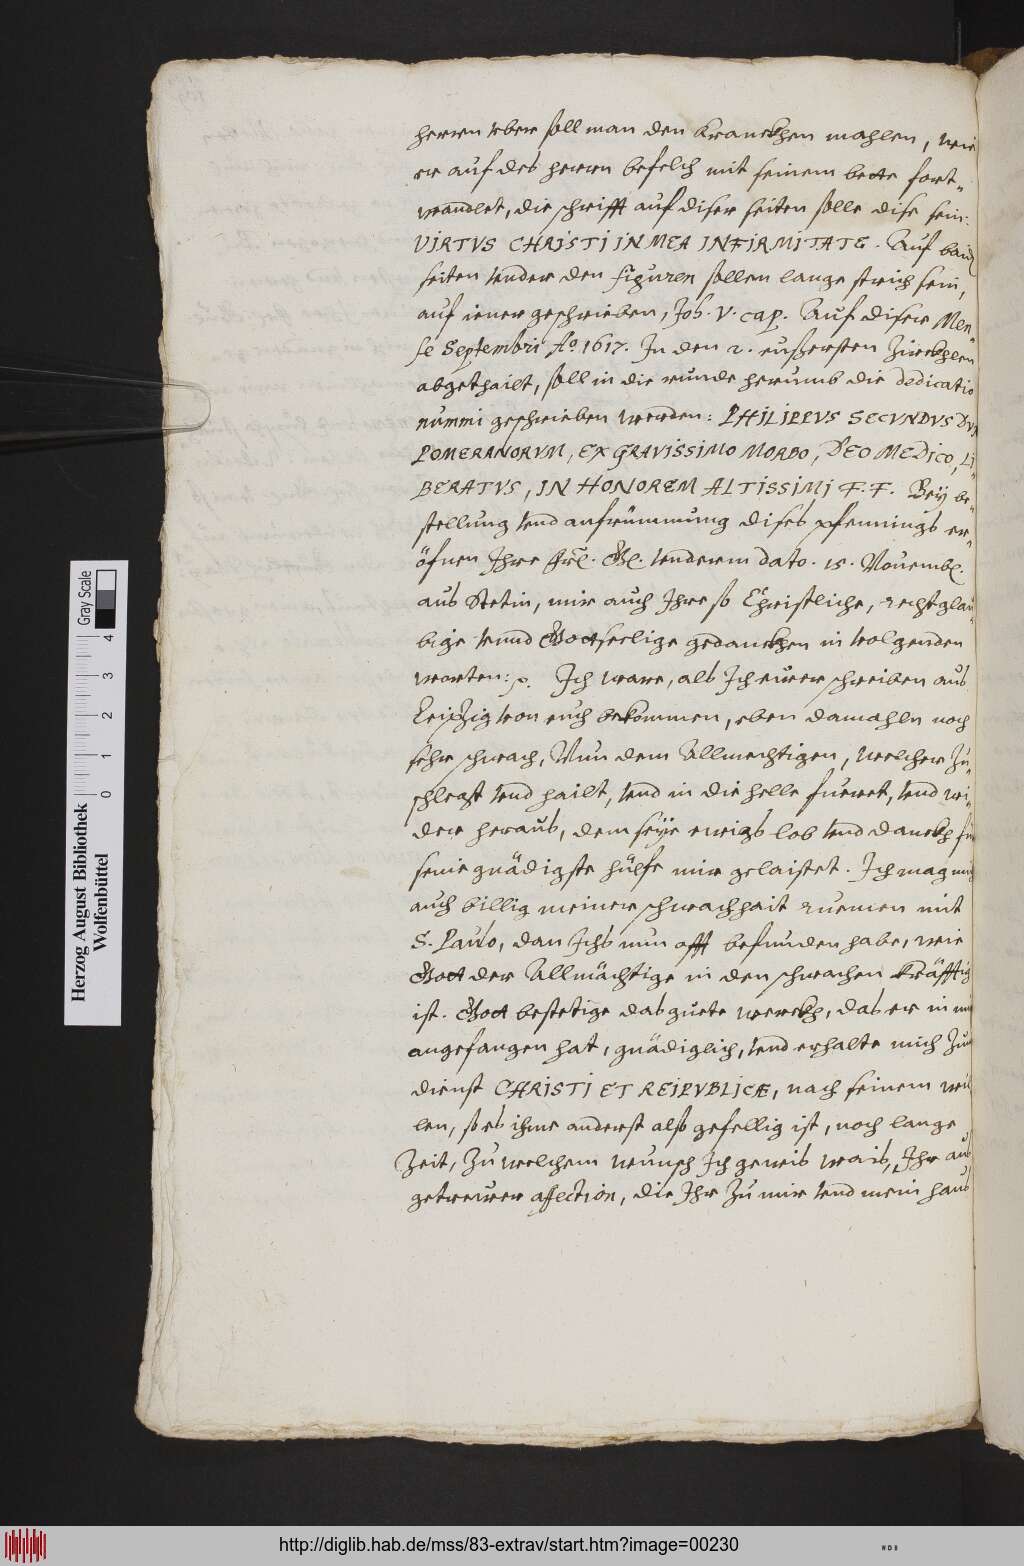 herren vber soll man den Kranckhen mahlen, wie
er auf des herrn befelch mit seinem bette fort-
wandlet, die schrifft auf diser seiten solle dise sein:
VIRTVS CHRISTI IN MEA INFIRMITATE. Auf baid
seiten vnder den figuren sollen lange strich sein,
auf iener geschrieben, Joh. V. cap. Auf diser Men-
se Septembri Ao 1617. In den 2. eußersten Zirckhlen
abgethailt, soll in die runde herumb die dedicatio
nummi geschrieben werden: PHILIPPVS SECVNDVS DVX
POMERANORVM, EX GRAVISSIMO MORBO, DEO MEDICO, LI-
BERATVS, IN HONOREM ALTISSIMI F. F. Bey be-
stellung vnd anfrümmung dises pfennings er-
öfnen Ihre frl. Gl. vnderm dato. 15. Nouembl.
aus Stetin, mir auch Ihre so Christliche, rechtglau
bige vnnd Gottseelige gedanckhen in volgenden
worten: p. Ich ware, als Ich eurer schreiben aus
Leipzig von euch bekommen, eben damahln noch
sehr schwach, Nun dem Allmechtigen, welcher zu-
schlegt vnd hailt, vnd in die helle fueret, vnd wi-
der heraus, dem seye ewigs lob vnd danckh für
seine gnädigste hülfe mir gelaistet. Ich mag mich
auch billig meiner schwachhait ruemen mit
S. Paulo, dan Ichs nun offt befunden habe, wie
Gott der Allmächtige in den schwachen kräfftig
ist. Gott bestetige das guete werckh, das er in mir
angefangen hat, gnädiglich, vnd erhalte mich zum
dienst CHRISTI ET REIPVBLICÆ, nach seinem wil
len, so es ihme anderst also gefellig ist, noch lange
Zeit, Zu welchem wunsch Ich gewis wais, Ihr aus
getreurer affection, die Ihr zu mir vnd mein haus
Herzog August Bibliothek
Wolfenbüttel
0 1 2 3 4
Gray Scale
http://diglib.hab.de/mss/83-extrav/start.htm?image=00230